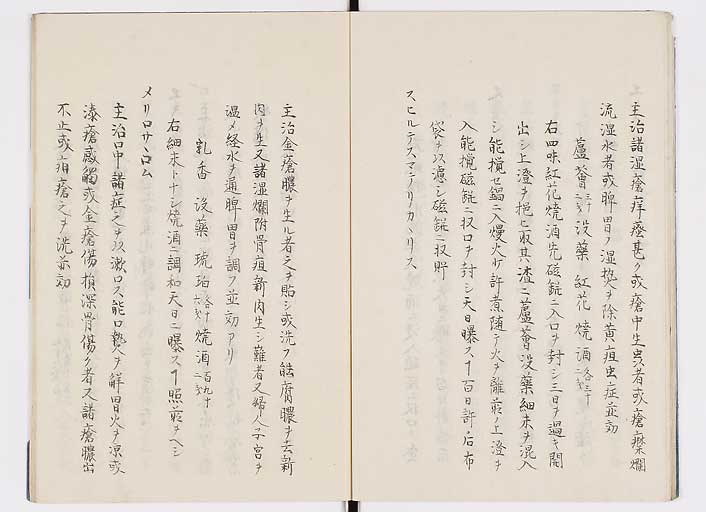 主治諸湿瘡痒癢甚ク或瘡中生虫者或瘡糜爛
流湿水者或脾胃ノ湿熱ヲ除黄疸虫症並効
蘆薈 三十二匁 没薬 紅花 焼酒 各三十二匁
右四味紅花焼酒先磁鋎ニ入口ヲ封シ三日ヲ過キ開
出シ上澄ヲ挹ヒ取其渣ニ蘆薈没薬細末ヲ混入
シ能攪セ鍋ニ入慢火ニ許煮随テ火ヲ離若ノ上澄ヲ
入能攪磁鋎ニ収口ヲ封シ天日曝スヿ百日許ノ后布
袋ヲ以濾シ磁鋎ニ収貯
スヒルテスマテリカヽリス
主治金瘡膿ヲ生ル者之ヲ貼シ或洗フ能腐膿ヲ去新
肉ヲ生又諸湿爛附骨疽新肉生シ難者又婦人子宮ヲ
温メ経水ヲ通脾胃ヲ調フ並効アリ
乳香 没薬 琥珀 焼酒
右細末トナシ焼酒ニ調和天日ニ曝スヿ照前ヘシ
メリロサヽロム
主治口中諸症之ヲ以漱口ス能口熱ヲ解胃火ヲ凉或
漆瘡感觸或金瘡傷損深骨傷ク者又諸瘡膿出
不止或疳瘡之ヲ洗並効